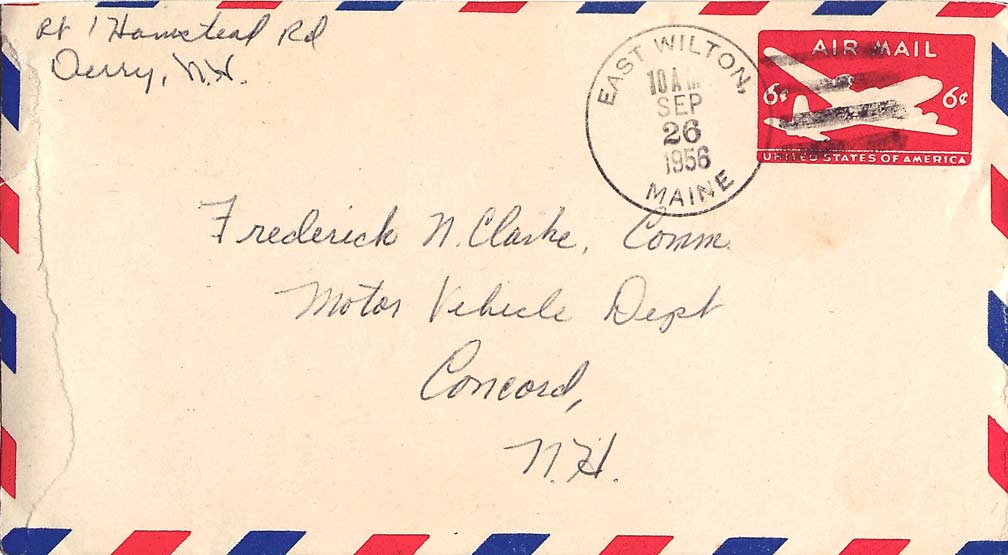 Rt 1 Hamstead Rd
Derry, N.H.
EAST WILTON,
10 AM
SEP
26
1956
MAINE
AIR MAIL
6¢ 6¢
UNITED STATES OF AMERICA
Frederick N. Clarke, Comm.
Motor Vehicle Dept
Concord,
N.H.